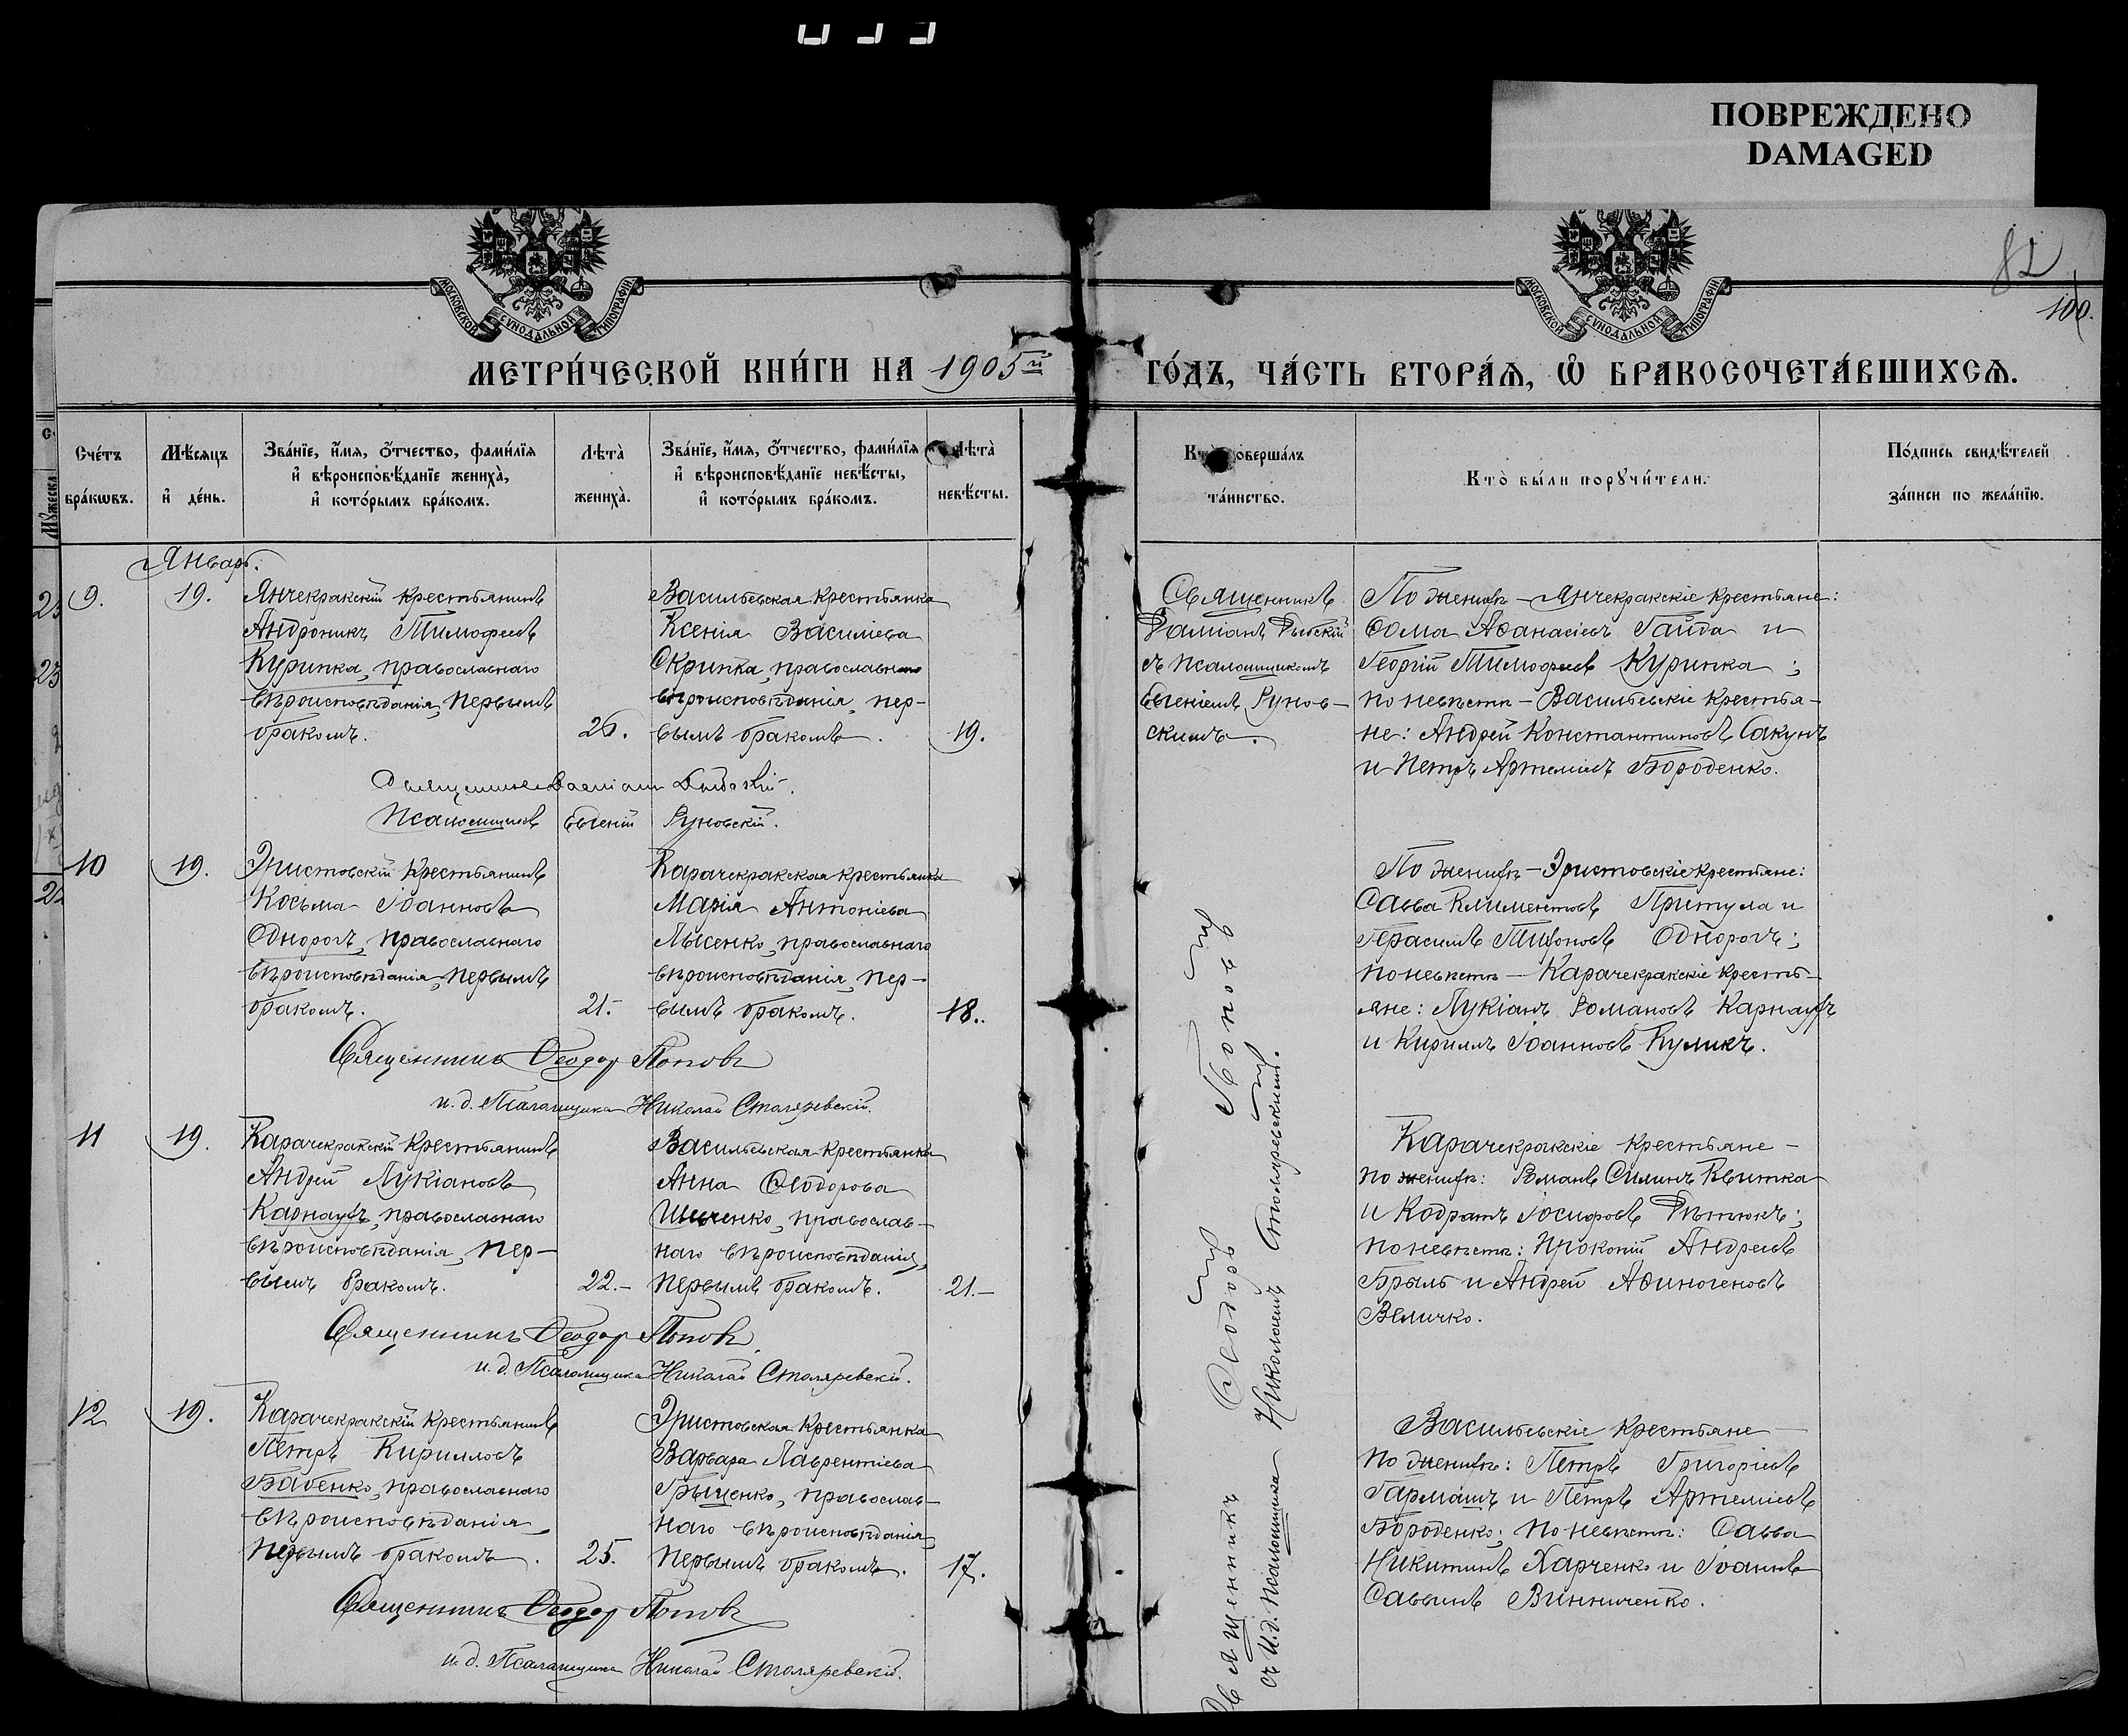 ПОВРЕЖДЕНО
DAMAGED
МОСКОВСКОЙ СѴНОДАЛЬНОЙ ТИПОГРАФІИ
МОСКОВСКОЙ СѴНОДАЛЬНОЙ ТИПОГРАФІИ
82
100.
МЕТРИ́ЧЕСКОЙ КНИ́ГИ НА 1905й
ГО́ДЪ, ЧА́СТЬ ВТОРА́Ѧ, Ѽ БРАКОСОЧЕТА́ВШИХСѦ.
Сче́тъ бра́кѡвъ.
Мѣ́сяцъ и҆ де́нь.
Зва́нїе, и҆́мя, ѻ҆́тчество, фами́лїя и҆ вѣроисповѣ́данїе жениха̀, и҆ кото́рымъ бра́комъ.
Лѣта̀ жениха̀.
Зва́нїе, и҆́мя, ѻ҆́тчество, фами́лїя и҆ вѣроисповѣ́данїе невѣ́сты, и҆ кото́рымъ бра́комъ.
Лѣта̀ невѣ́сты.
Кто̀ соверша́лъ та́инство.
Кто̀ бы́ли порꙋчи́тели.
По́дпись свидѣ́телей за́писи по жела́нїю.
Январь.
9.
19.
Янчекракскій крестьянинъ
Андроникъ Тимофеевъ
Куринка, православнаго
вѣроисповѣданія, первымъ
бракомъ.
26.
Васильевская крестьянка
Ксенія Василіева
Скрипка, православнаго
вѣроисповѣданія, пер-
вымъ бракомъ.
19.
Священникъ
Даміанъ Дыбскій
съ псаломщикомъ
Евгеніемъ Рунов-
скимъ.
По женихѣ – Янчекракскіе крестьяне:
Ѳома Аѳанасіевъ Гайда и
Георгій Тимофеевъ Куринка;
по невѣстѣ – Васильевскіе крестья-
не: Андрей Константиновъ Сакунъ
и Петръ Артеміевъ Бороденко.
Псаломщикъ Евгеній Руновскій.
10
19.
Эристовскій крестьянинъ
Косьма Іоанновъ
Однорогъ, православнаго
вѣроисповѣданія, первымъ
бракомъ.
21.-
Карачекракская крестьянка
Марія Антоніева
Лысенко, православнаго
вѣроисповѣданія, пер-
вымъ бракомъ.
18..
По женихѣ – Эристовскіе крестьяне:
Савва Климентовъ Притула и
Герасимъ Тихоновъ Однорогъ;
по невѣстѣ – Карачекракскіе кресть-
яне: Лукіанъ Романовъ Карнаухъ
и Кириллъ Іоанновъ Куликъ.
Священникъ Ѳеодоръ Поповъ
и. д. Псаломщика Николай Столяревскій.
11
19.
Карачекракскій крестьянинъ
Андрей Лукіановъ
Карнаухъ, православнаго
вѣроисповѣданія, пер-
вымъ бракомъ.
22.-
Васильевская крестьянка
Анна Ѳеодорова
Шевченко, православ-
наго вѣроисповѣданія,
первымъ бракомъ.
21.-
Карачекракскіе крестьяне –
по женихѣ: Романъ Силинъ Квитка
и Кодратъ Іосифовъ Дѣтюкъ;
по невѣстѣ: Прокопій Андреевъ
Брыль и Андрей Аѳиногеновъ
Величко.
Священникъ Ѳеодоръ Поповъ
и. д. Псаломщика Николай Столяревскій.
12
19.
Карачекракскій крестьянинъ
Петръ Кирилловъ
Бабенко, православнаго
вѣроисповѣданія
первымъ бракомъ.
25.
Эристовская крестьянка
Варвара Лаврентіева
Грыценко, православ-
наго вѣроисповѣданія,
первымъ бракомъ.
17.
Васильевскіе крестьяне –
по женихѣ: Петръ Григоріевъ
Гармашъ и Петръ Артеміевъ
Бороденко; по невѣстѣ: Савва
Никитинъ Харченко и Іоаннъ
Саввинъ Винниченко.
Священникъ Ѳеодоръ Поповъ
и. д. Псаломщика Николай Столяревскій.
Священникъ Ѳеодоръ Поповъ
съ и. д. псаломщика Николаемъ Столяревскимъ.